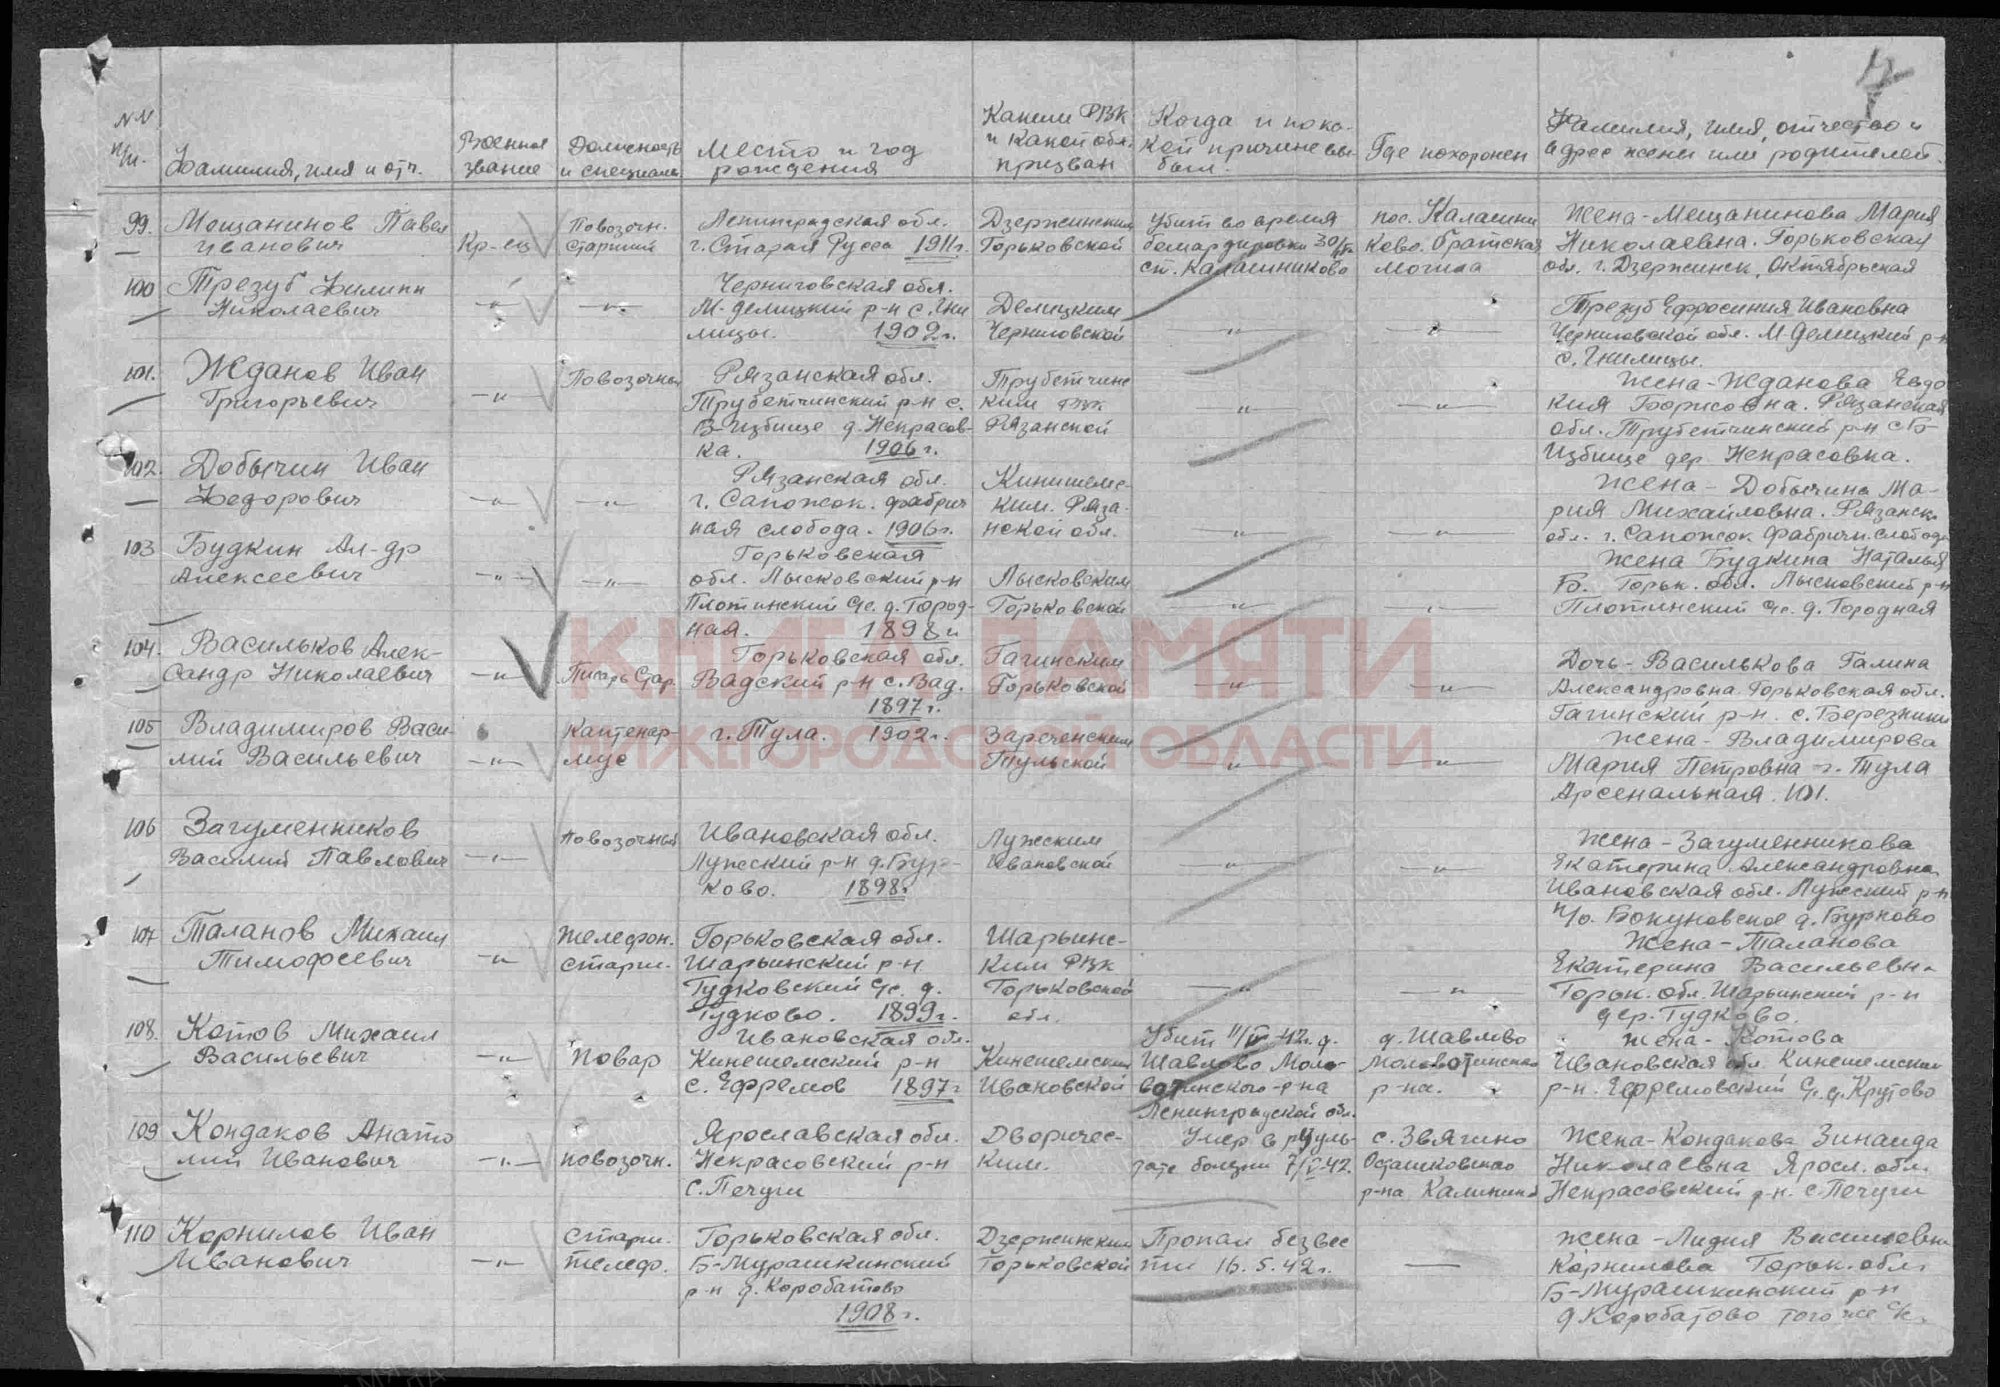 NN п/п.
Фамилия, имя и отч.
Военное звание
Должность и специальн.
Место и год рождения
Каким РВК и какой обл. призван
Когда и по какой причине выбыл.
Где похоронен
Фамилия, имя, отчество и адрес жены или родителей.
99. Мещанинов Павел
Иванович
Кр-ец
Повозочн.
Старший
Ленинградская обл.
г. Старая Русса 1911г.
Дзержинским
Горьковской
Убит во время
бомардировки
ст. Калашниково
пос. Калашни
ково. Братская
могила
Жена - Мещанинова Мария
Николаевна. Горьковская
обл. г. Дзержинск, Октябрьская
100 Трезуб Филипп
Николаевич
—"—
—"—
Черниговская обл.
М-Делицкий р-н с. Гни
лицы. 1902г.
Делицким
Черниговской
—"—
—"—
Трезуб Ефросиния Ивановна
Черниговской обл. М Делицкий р-н
с. Гнилицы.
101. Жданов Иван
Григорьевич
—"—
Повозочный
Рязанская обл.
Трубетчинский р-н с.
Б-Избище д. Некрасов-
ка. 1906г.
Трубетчинс
ким РВК
Рязанской
—"—
—"—
Жена - Жданова Евдо
кия Борисовна. Рязанская
обл. Трубетчинский р-н с Б-
Избище дер. Некрасовка.
102. Добычин Иван
Федорович
—"—
—"—
Рязанская обл.
г. Сапожок. фабрич
ная слобода. 1906г.
Кинишемс-
ким. Ряза-
нской обл.
—"—
—"—
Жена - Добычина Ма-
рия Михайловна. Рязанск.
обл. г. Сапожок Фабричн. слобода
103 Будкин Ал-др
Алексеевич
—"—
—"—
Горьковская
обл. Лысковский р-н
Плотинский с/с. д. Город-
ная. 1898г.
Лысковским
Горьковской
—"—
Жена Будкина Наталья
Б. Горьк. обл. Лысковский р-н
Плотинский с/с. д. Городная
104. Васильков Алек-
сандр Николаевич
—"—
Писарь Стар.
Горьковская обл.
Вадский р-н с. Вад.
1897г.
Гагинским
Горьковской
—"—
—"—
Дочь - Василькова Галина
Александровна Горьковская обл.
Гагинский р-н. с. Березники
105 Владимиров Васи-
лий Васильевич
—"—
Каптенар-
мус
г. Тула. 1902г.
Зареченским
Тульской
—"—
—"—
Жена - Владимирова
Мария Петровна г. Тула
Арсенальная. 101.
106 Загуменников
Василий Павлович
—"—
Повозочный
Ивановская обл.
Лужский р-н д. Бур-
ково. 1898г.
Лужским
Ивановской
—"—
—"—
Жена - Загуменникова
Екатерина Александровна
Ивановская обл. Лужский р-н
п/о. Бокуновское д. Бурково
107 Таланов Михаил
Тимофеевич
—"—
Телефон.
старш.
Горьковская обл.
Шарьинский р-н
Гудковский с/с. д.
Гудково. 1899г.
Шарьинс-
ким РВК
Горьковской
обл.
—"—
—"—
Жена - Таланова
Екатерина Васильевн.
Горьк. обл. Шарьинский р-н
дер. Гудково.
108. Котов Михаил
Васильевич
—"—
Повар
Ивановская обл.
Кинешемский р-н
с. Ефремов 1897г
Кинешемским
Ивановской
Убит 42г. д.
Шавлово Моло-
вотинского р-на
Ленинградской обл.
д. Шавлево
Моловотинского
р-на.
Жена - Котова
Ивановская обл. Кинешемский
р-н. Ефремовский с/с. д. Крутово
109 Кондаков Анато
лий Иванович
—"—
повозочн.
Ярославская обл.
Некрасовский р-н
с. Печуги
Дворичес-
ким.
Умер в резуль-
тате болезни 42.
с. Звягино
Осташковского
р-на Калинин
Жена - Кондакова Зинаида
Николаевна Яросл. обл.
Некрасовский р-н. с. Печуги
110 Корнилов Иван
Иванович
—"—
старш.
телеф.
Горьковская обл.
Б-Мурашкинский
р-н д. Коробатово
1908г.
Дзержинским
Горьковской
Пропал безвес
ти 16. 5. 42г.
—
Жена - Лидия Васильевн
Корнилова Горьк. обл.
Б-Мурашкинский р-н
д Коробатово того же с/с.
КНИГА ПАМЯТИ
НИЖЕГОРОДСКОЙ ОБЛАСТИ